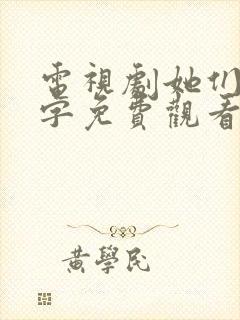 電視劇她们
字免費觀看
黃學民